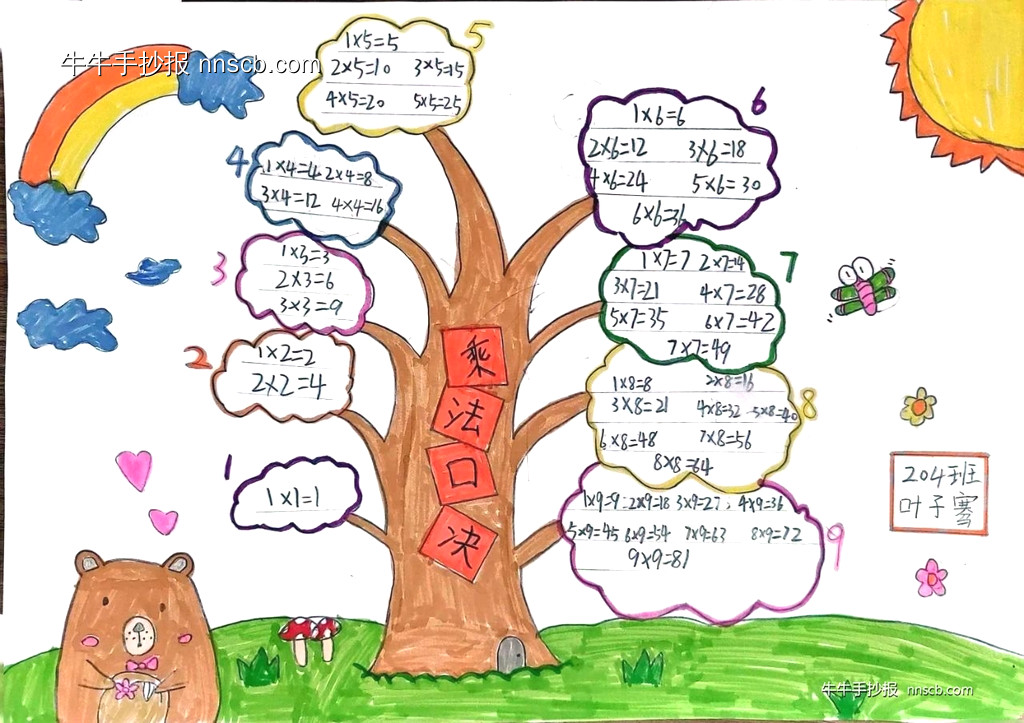 牛牛手抄报 nnscb.com
5
1×5=5
2×5=10 3×5=15
4×5=20 5×5=25
4
1×4=4 2×4=8
3×4=12 4×4=16
3
1×3=3
2×3=6
3×3=9
2
1×2=2
2×2=4
1
1×1=1
乘
法
口
决
6
1×6=6
2×6=12 3×6=18
4×6=24 5×6=30
6×6=36
7
1×7=7 2×7=14
3×7=21 4×7=28
5×7=35 6×7=42
7×7=49
8
1×8=8 2×8=16
3×8=21 4×8=32 5×8=40
6×8=48 7×8=56
8×8=64
9
1×9=9 2×9=18 3×9=27, 4×9=36
5×9=45 6×9=54 7×9=63 8×9=72
9×9=81
204班
叶子骞
牛牛手抄报 nnscb.com